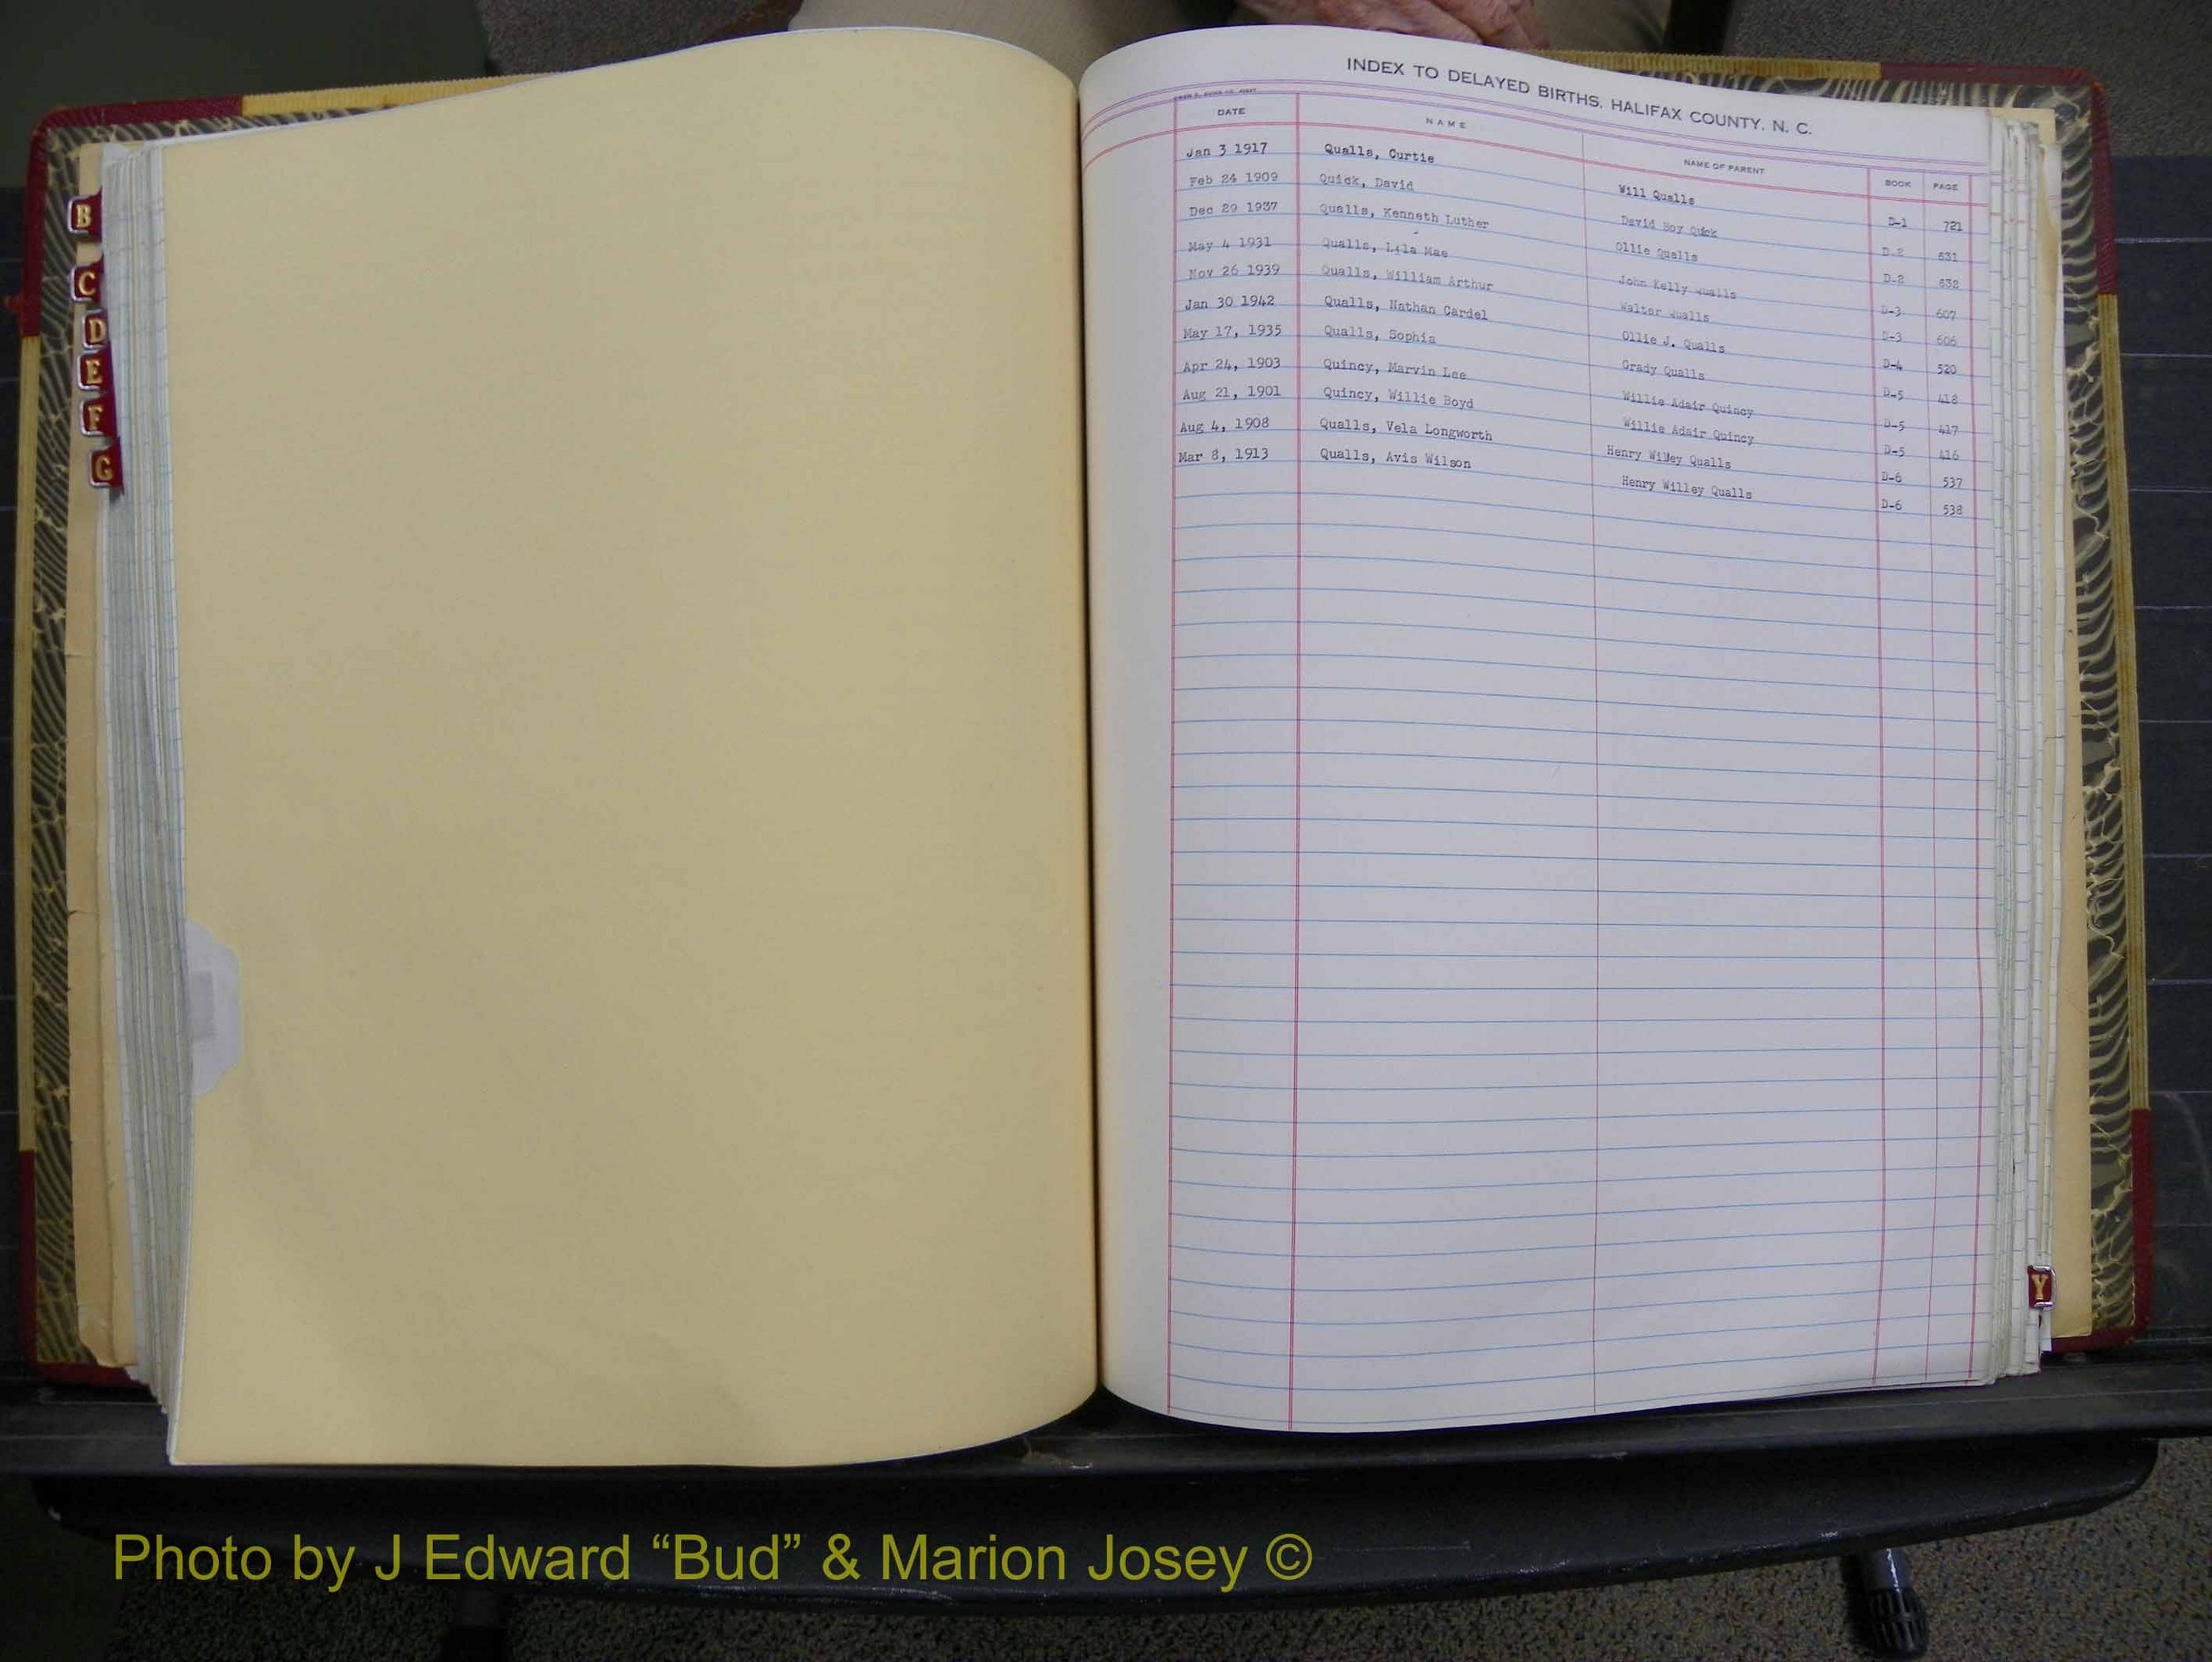 INDEX TO DELAYED BIRTHS, HALIFAX COUNTY, N. C.
DATE NAME NAME OF PARENT BOOK PAGE
Jan 3 1917 Qualls, Curtie Will Qualls D-1 721
Feb 24 1909 Quick, David David Roy Quick D-2 631
Dec 29 1937 Qualls, Kenneth Luther Ollie Qualls D-2 632
May 4 1931 Qualls, Lila Mae John Kelly Qualls D-3 607
Nov 26 1939 Qualls, William Arthur Walter Qualls D-3 606
Jan 30 1942 Qualls, Nathan Cardel Ollie J. Qualls D-4 520
May 17, 1935 Qualls, Sophia Grady Qualls D-5 418
Apr 24, 1903 Quincy, Marvin Lee Willie Adair Quincy D-5 417
Aug 21, 1901 Quincy, Willie Boyd Willie Adair Quincy D-5 416
Aug 4, 1908 Qualls, Vela Longworth Henry Willey Qualls D-6 537
Mar 8, 1913 Qualls, Avis Wilson Henry Willey Qualls D-6 538
B
C
D
E
F
G
Y
Photo by J Edward “Bud” & Marion Josey ©